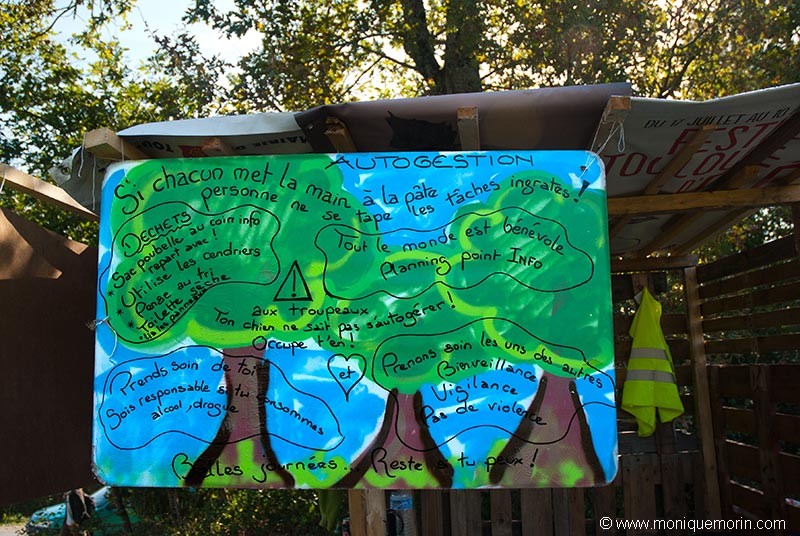 AUTOGESTION
Si chacun met la main à la pâte
personne ne se tape les tâches ingrates !
DECHETS
* Sac poubelle au coin info
* repart avec !
* Utilise les cendriers
* Pense au tri
* Toilette sèche
Tout le monde est bénévole
Planning point INFO
!
aux troupeaux
Ton chien ne sait pas s'autogérer !
Occupe t'en !
et
Prends soin de toi
Sois responsable si tu consommes
alcool, drogue
Prenons soin les uns des autres
Bienveillance
Vigilance
Pas de violence
Belles journées... Reste si tu peux !
DU 17 JUILLET AU 10
© www.moniquemorin.com